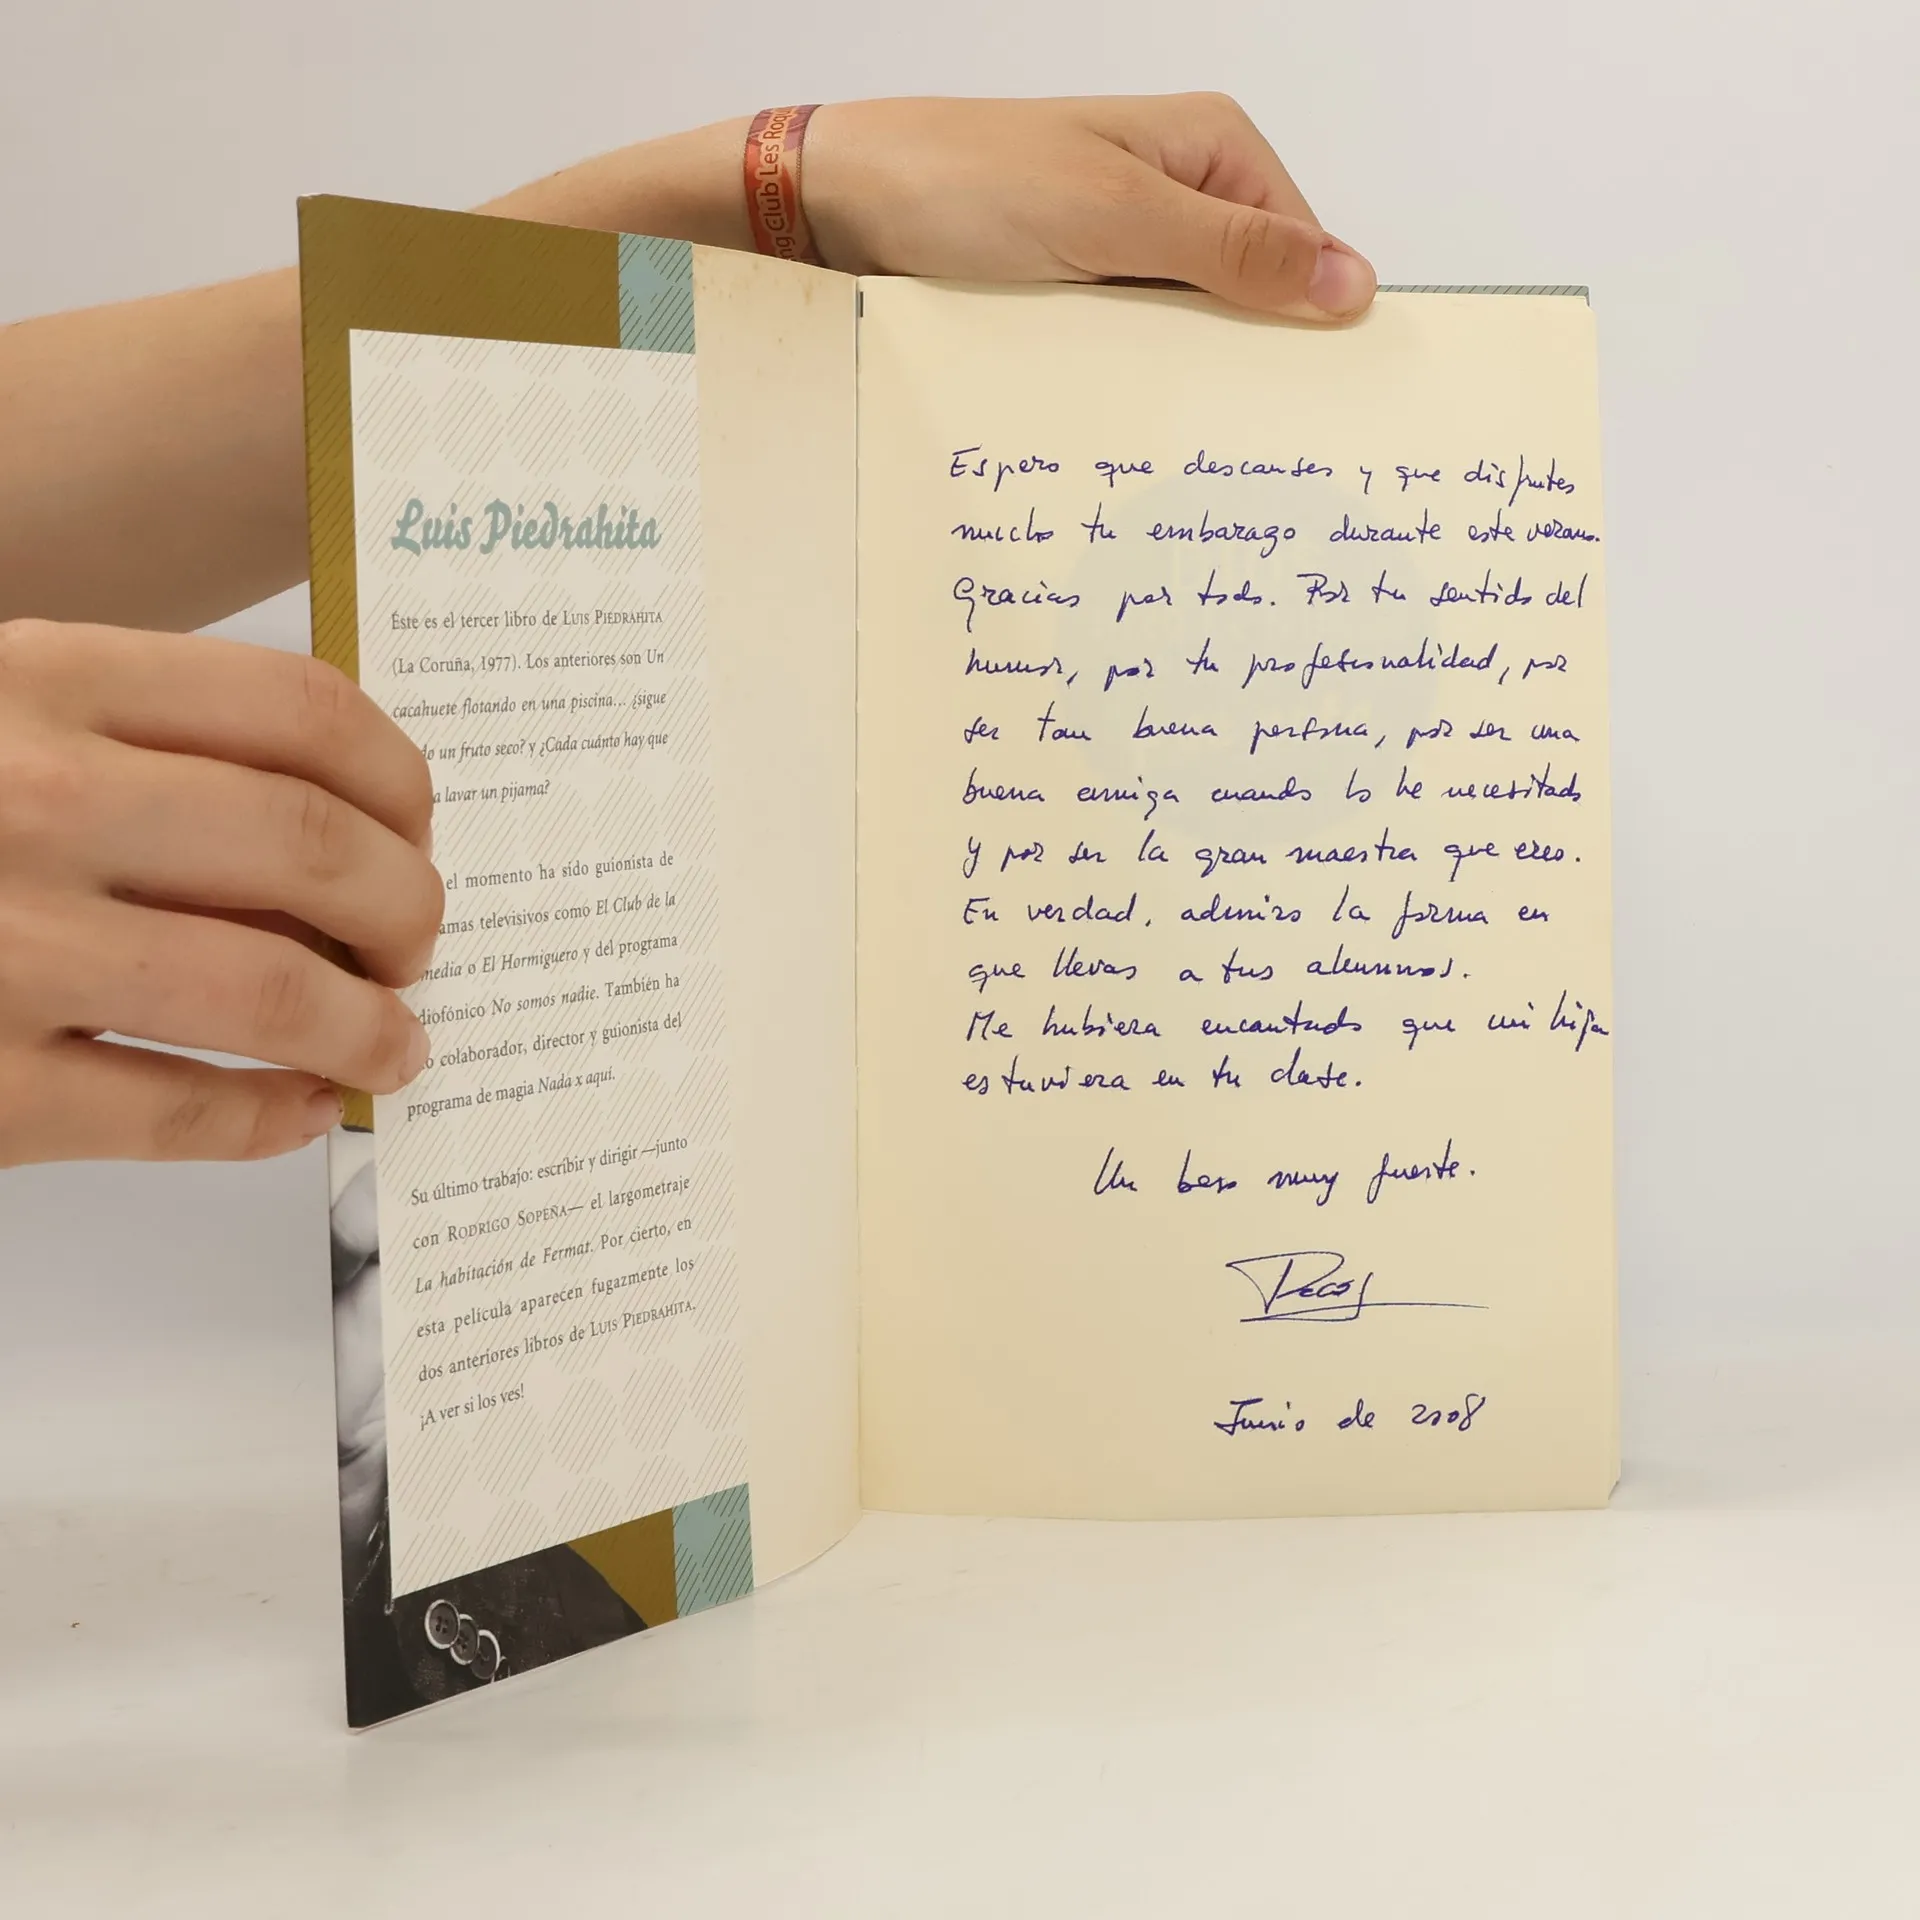 ng Club Les Roqu
Luis Piedrahita
Éste es el tercer libro de LUIS PIEDRAHITA
(La Coruña, 1977). Los anteriores son Un
cacahuete flotando en una piscina... ¿sigue
do un fruto seco? y ¿Cada cuánto hay que
a lavar un pijama?
el momento ha sido guionista de
amas televisivos como El Club de la
media o El Hormiguero y del programa
diofónico No somos nadie. También ha
o colaborador, director y guionista del
programa de magia Nada x aquí.
Su último trabajo: escribir y dirigir —junto
con RODRIGO SOPEÑA— el largometraje
La habitación de Fermat. Por cierto, en
esta película aparecen fugazmente los
dos anteriores libros de LUIS PIEDRAHITA.
¡A ver si los ves!
Espero que descanses y que disfrutes
mucho tu embarago durante este verano.
Gracias por todo. Por tu sentido del
humor, por tu profesionalidad, por
ser tan buena persona, por ser una
buena amiga cuando lo he necesitado
y por ser la gran maestra que eres.
En verdad, admiro la forma en
que llevas a tus alumnos.
Me hubiera encantado que mi hija
estuviera en tu clase.
Un beso muy fuerte.
Junio de 2008